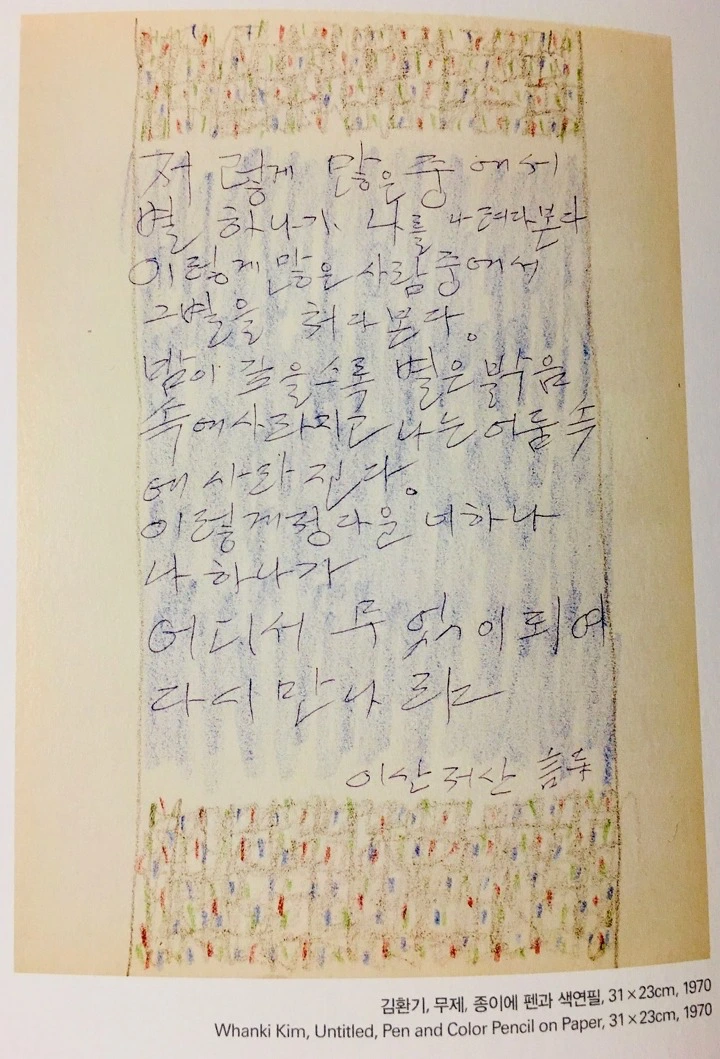 저렇게 많은 중에서
별 하나가 나를 나려다본다
이렇게 많은 사람중에서
그별을 쳐다본다。
밤이 깊을수록 별은 밝음
속에 사라지고 나는 어둠 속
에 사라진다。
이렇게 정다운 너하나
나 하나가
어디서 무엇이 되여
다시 만나랴
이산 저산 詩
김환기, 무제, 종이에 펜과 색연필, 31×23cm, 1970
Whanki Kim, Untitled, Pen and Color Pencil on Paper, 31×23cm, 1970